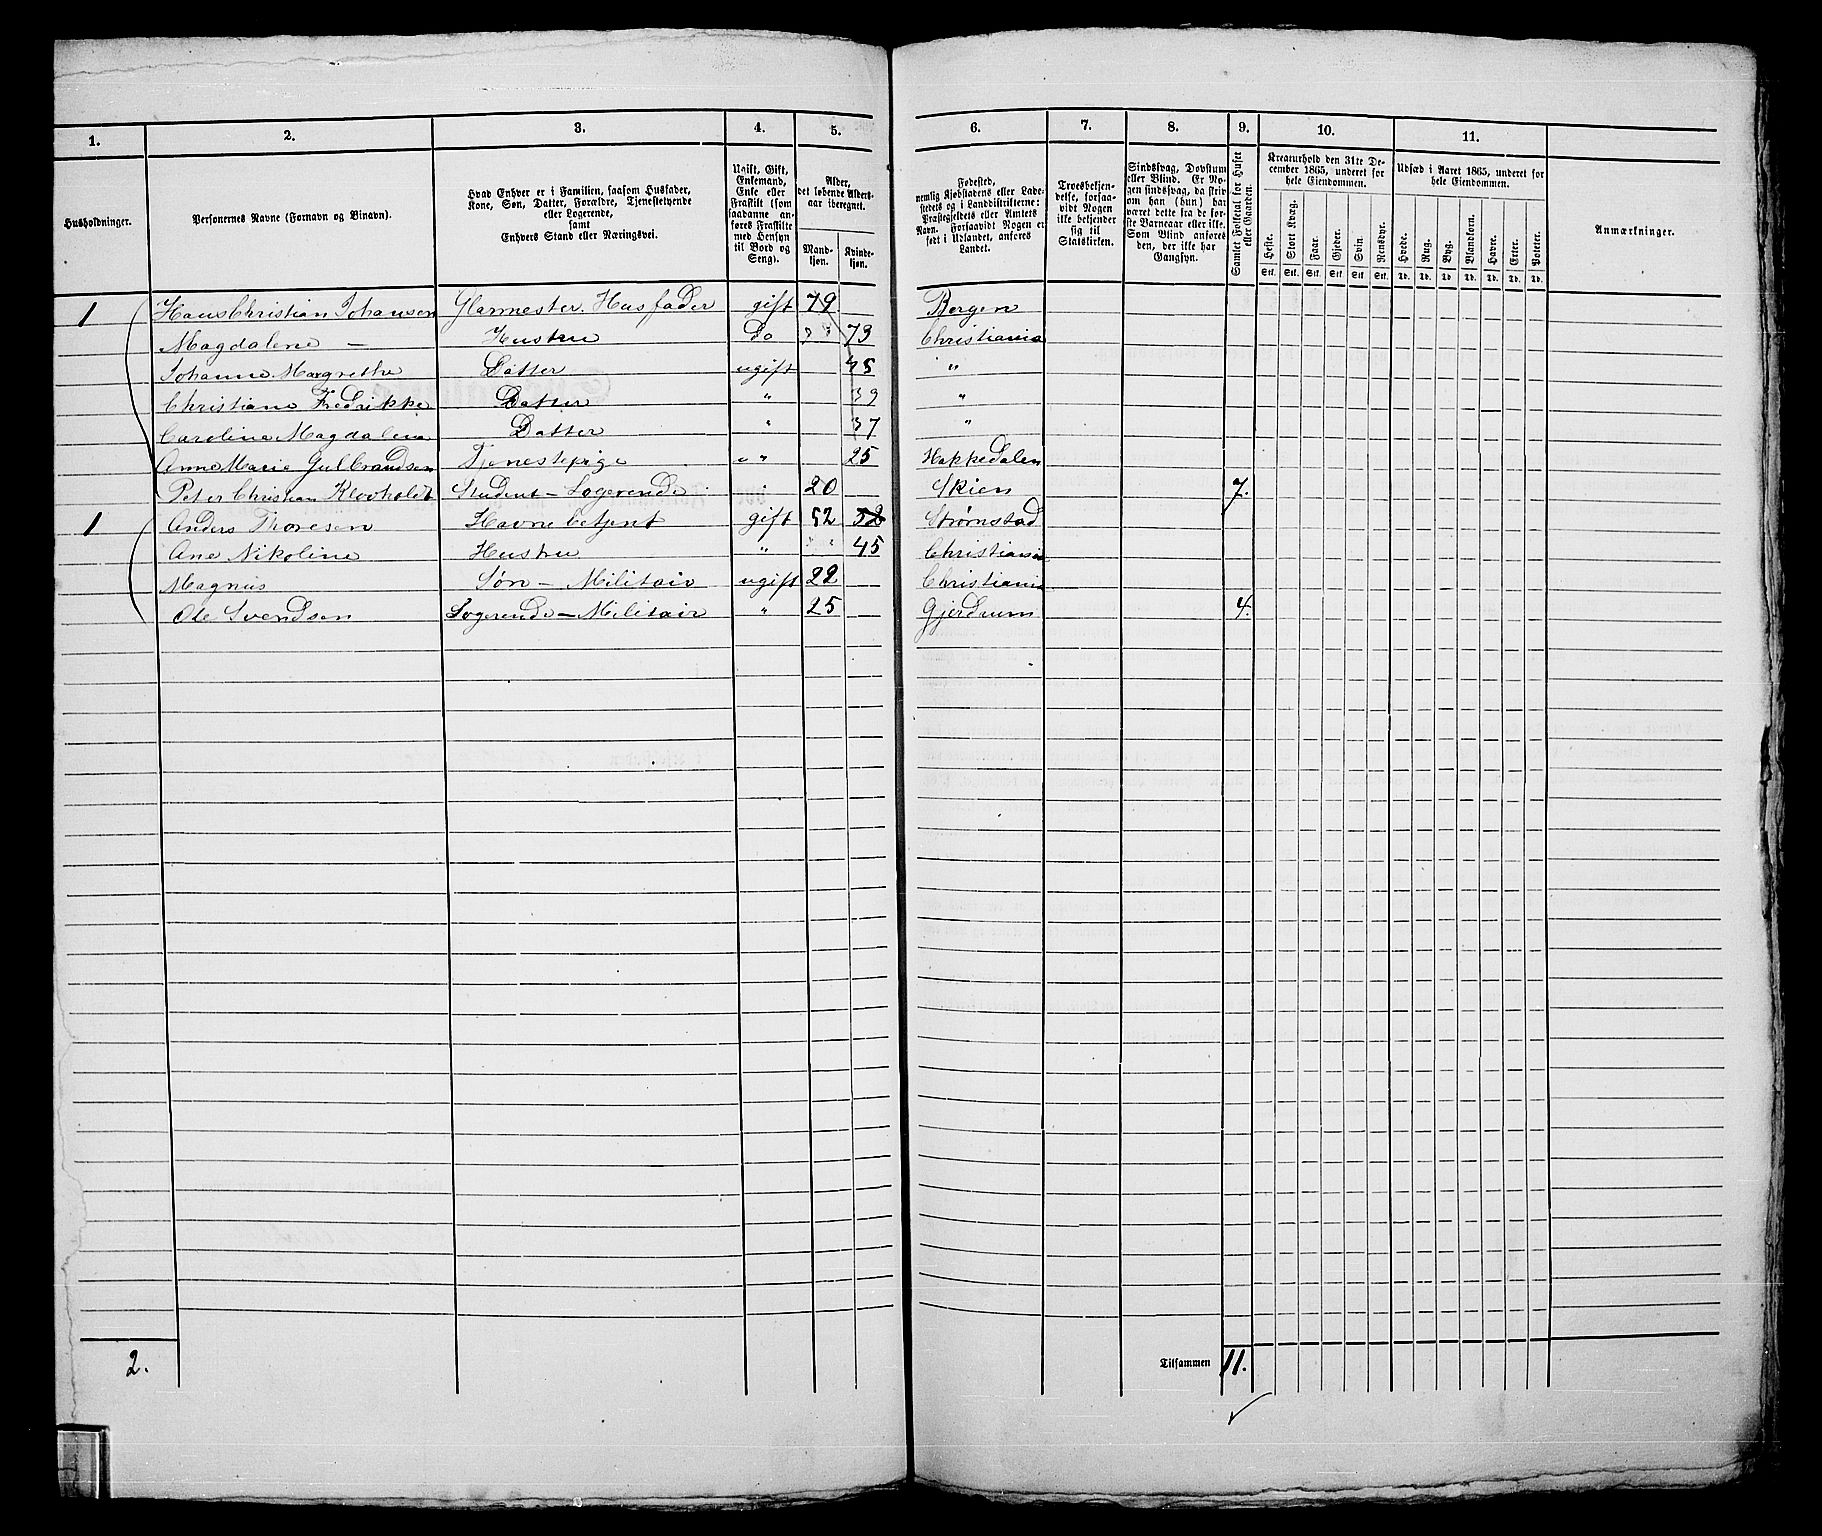 1. 2. 3. 4. 5. 6. 7. 8. 9. 10. 11.
Husholdninger.
Personernes Navne (Fornavn og Binavn).
Hvad Enhver er i Familien, saasom Husfader,
Kone, Søn, Datter, Forældre, Tjenestetyende
eller Logerende,
samt
Enhvers Stand eller Næringsvei.
Ugift, Gift,
Enkemand,
Enke eller
Fraskilt (som
saadanne an-
føres Fraskilte
med Hensyn
til Bord og
Seng).
Alder,
det løbende Alders-
aar iberegnet.
Mand-
kjøn.
Kvinde-
kjøn.
Fødested,
nemlig Kjøbstadens eller Lade-
stedets og i Landdistrikterne:
Præstegjeldets eller Amtets
Navn. Forsaavidt Nogen er
født i Udlandet, anføres
Landet.
Troesbekjen-
delse, forsaa-
vidt Nogen
ikke bekjender
sig til
Statskirken.
Sindssvag, Døvstum
eller Blind. Er No-
gen sindssvag, da skriv
om han (hun) har
været dette fra de før-
ste Barneaar eller ikke.
Som Blind anføres
den, der ikke har
Gangsyn.
Samlet Folketal for Huset
eller Gaarden.
Kreaturhold den 31te De-
cember 1865, underet for
hele Eiendommen.
Heste. Stort Kvæg. Faar. Gjeder. Svin. Rensdyr.
Stk. Stk. Stk. Stk. Stk. Stk.
Udsæd i Aaret 1865, underet for
hele Eiendommen.
Hvede. Rug. Byg. Blandkorn. Havre. Erter. Poteter.
Td. Td. Td. Td. Td. Td. Td.
Anmærkninger.
1 Hans Christian Johansen Glarmester. Husfader gift 79 Bergen
Magdalene — Hustru Do 73 Christiania
Johanne Margrethe Datter ugift 45 "
Christiane Fredrikke Datter " 39 "
Caroline Magdalena Datter " 37 "
Anne Marie Gulbrandsen Tjenestepige " " 25 Hakkedalen
Peter Christian Student - Logerende 20 Skien 7.
1 Anders Thoresen Havnebetjent gift 52 52 Strømstad
Ane Nikoline Hustru " 45 Christiania
Magnus Søn - Militair ugift 22 Christiania
Ole Svendsen Logerende - Militair " 25 Gjerdrum 4.
2. Tilsammen 11.